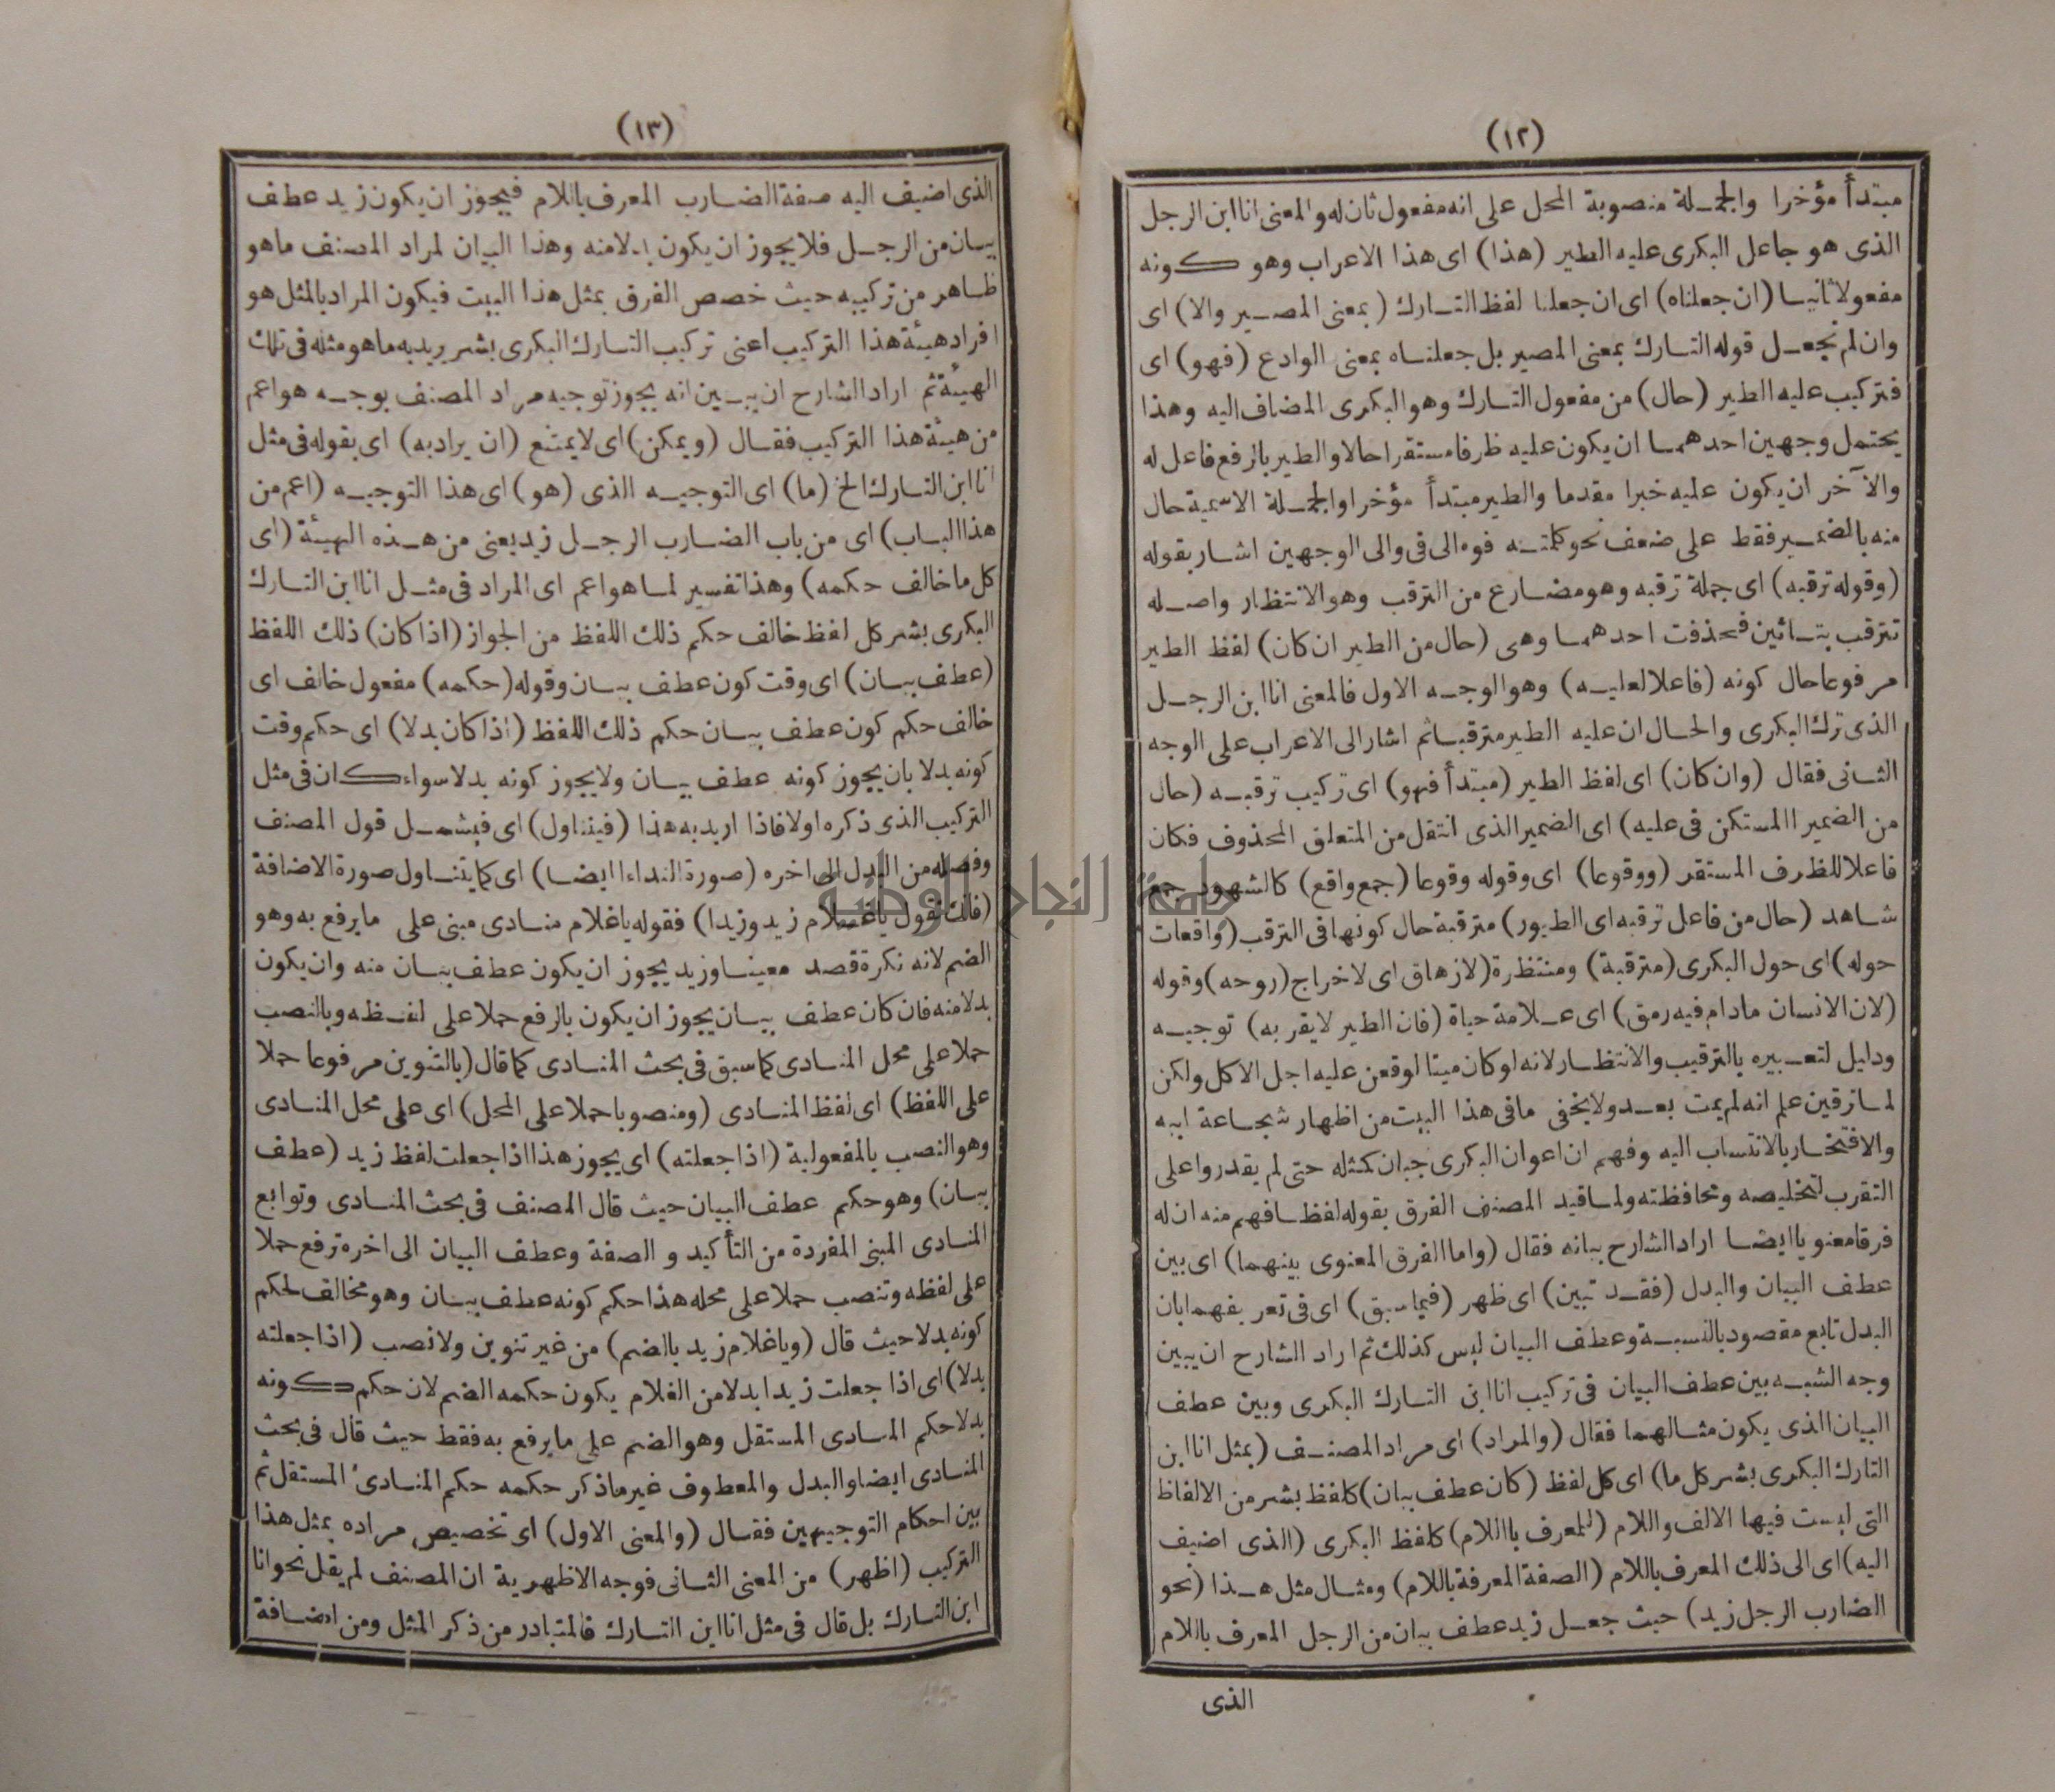 (١٢)
مبتدأ مؤخرا والجملة منصوبة المحل على انه مفعول ثان له والمعنى انا ابن الرجل
الذى هو جاعل البكرى عليه الطير (هذا) اى هذا الاعراب وهو كونه
مفعولا ثانيا (ان جعلناه) اى ان جعلنا لفظ التارك (بمعنى المصير والا) اى
وان لم نجعل قوله التارك بمعنى المصير بل جعلناه بمعنى الوادع (فهو) اى
فتركيب عليه الطير (حال) من مفعول التارك وهو البكرى المضاف اليه وهذا
يحتمل وجهين احدهما ان يكون عليه ظرفا مستقرا حالا والطير بالرفع فاعل له
والآخر ان يكون عليه خبرا مقدما والطير مبتدأ مؤخرا والجملة الاسمية حال
منه بالضمير فقط على ضعف نحو كلمته فوه الى فى والى الوجهين اشار بقوله
(وقوله ترقبه) اى جملة ترقبه وهو مضارع من الترقب وهو الانتظار واصله
تترقب بتائين فحذفت احدهما وهى (حال من الطير ان كان) لفظ الطير
مرفوعا حال كونه (فاعلا لعليه) وهو الوجه الاول فالمعنى انا ابن الرجل
الذى ترك البكرى والحال ان عليه الطير مترقبا ثم اشار الى الاعراب على الوجه
الثانى فقال (وان كان) اى لفظ الطير (مبتدأ فهو) اى تركيب ترقبه (حال
من الضمير المستكن فى عليه) اى الضمير الذى انتقل من المتعلق المحذوف فكان
فاعلا للظرف المستقر (ووقوعا) اى وقوله وقوعا (جمع واقع) كالشهود جمع
شاهد (حال من فاعل ترقبه اى الطيور) مترقبة حال كونها فى الترقب (واقعات
حوله) اى حول البكرى (مترقبة) ومنتظرة (لازهاق اى لاخراج (روحه) وقوله
(لان الانسان مادام فيه رمق) اى علامة حياة (فان الطير لايقربه) توجيه
ودليل لتعبيره بالترقيب والانتظار لانه لو كان ميتا لوقعن عليه اجل الاكل ولكن
لما ترقبن علم انه لم يمت بعد ولا يخفى ما فى هذا البيت من اظهار شجاعة ابيه
والافتخار بالانتساب اليه وفهم ان اعوان البكرى جبان كمثله حتى لم يقدروا على
التقرب لتخليصه ومحافظته ولما قيد المصنف الفرق بقوله لفظا فهم منه ان له
فرقا معنويا ايضا اراد الشارح بيانه فقال (واما الفرق المعنوى بينهما) اى بين
عطف البيان والبدل (فقد تبين) اى ظهر (فيما سبق) اى فى تعريفهما بان
البدل تابع مقصود بالنسبة وعطف البيان ليس كذلك ثم اراد الشارح ان يبين
وجه الشبه بين عطف البيان فى تركيب انا ابن التارك البكرى وبين عطف
البيان الذى يكون مثالهما فقال (والمراد) اى مراد المصنف (بمثل انا ابن
التارك البكرى بشر كل ما) اى كل لفظ (كان عطف بيان) كلفظ بشر من الالفاظ
التى ليست فيها الالف واللام (للمعرف باللام) كلفظ البكرى (الذى اضيف
اليه) اى الى ذلك المعرف باللام (الصفة المعرفة باللام) ومثال مثل هذا (نحو
الضارب الرجل زيد) حيث جعل زيد عطف بيان من الرجل المعرف باللام
الذى
(١٣)
الذى اضيف اليه صفة الضارب المعرف باللام فيجوز ان يكون زيد عطف
بيان من الرجل فلا يجوز ان يكون بدلا منه وهذا البيان لمراد المصنف ما هو
ظاهر من تركيبه حيث خصص الفرق بمثل هذا البيت فيكون المراد بالمثل هو
افراد هيئة هذا التركيب اعنى تركيب التارك البكرى بشر يريد به ما هو مثله فى تلك
الهيئة ثم اراد الشارح ان يبين انه يجوز توجيه مراد المصنف بوجه هو اعم
من هيئة هذا التركيب فقال (ويمكن) اى لا يمتنع (ان يراد به) اى بقوله فى مثل
انا ابن التارك الخ (ما) اى التوجيه الذى (هو) اى هذا التوجيه (اعم من
هذا الباب) اى من باب الضارب الرجل زيد يعنى من هذه الهيئة (اى
كل ما خالف حكمه) وهذا تفسير لما هو اعم اى المراد فى مثل انا ابن التارك
البكرى بشر كل لفظ خالف حكم ذلك اللفظ من الجواز (اذا كان) ذلك اللفظ
(عطف بيان) اى وقت كون عطف بيان وقوله (حكمه) مفعول خالف اى
خالف حكم كون عطف بيان حكم ذلك اللفظ (اذا كان بدلا) اى حكم وقت
كونه بدلا بان يجوز كونه عطف بيان ولا يجوز كونه بدلا سواء كان فى مثل
التركيب الذى ذكره اولا فاذا اريد به هذا (فيتناول) اى فيشمل قول المصنف
وفصله من البدل الى اخره (صورة النداء ايضا) اى كما يتناول صورة الاضافة
(فانك تقول يا غلام زيد وزيدا) فقوله يا غلام منادى مبنى على ما يرفع به وهو
الضم لانه نكرة قصد معينا وزيد يجوز ان يكون عطف بيان منه وان يكون
بدلا منه فان كان عطف بيان يجوز ان يكون بالرفع حملا على لفظه وبالنصب
حملا على محل المنادى كما سبق فى بحث المنادى كما قال (بالتنوين مرفوعا حملا
على اللفظ) اى لفظ المنادى (ومنصوبا حملا على المحل) اى على محل المنادى
وهو النصب بالمفعولية (اذا جعلته) اى يجوز هذا اذا جعلت لفظ زيد (عطف
بيان) وهو حكم عطف البيان حيث قال المصنف فى بحث المنادى وتوابع
المنادى المبنى المفردة من التأكيد و الصفة وعطف البيان الى اخره ترفع حملا
على لفظه وتنصب حملا على محله هذا حكم كونه عطف بيان وهو مخالف لحكم
كونه بدلا حيث قال (ويا غلام زيد بالضم) من غير تنوين ولا نصب (اذا جعلته
بدلا) اى اذا جعلت زيدا بدلا من الغلام يكون حكمه الضم لان حكم كونه
بدلا حكم المنادى المستقل وهو الضم على ما يرفع به فقط حيث قال فى بحث
المنادى ايضا والبدل والمعطوف غير ما ذكر حكمه حكم المنادى المستقل ثم
بين احكام التوجيهين فقال (والمعنى الاول) اى تخصيص مراده بمثل هذا
التركيب (اظهر) من المعنى الثانى فوجه الاظهرية ان المصنف لم يقل نحو انا
ابن التارك بل قال فى مثل انا ابن التارك فالمتبادر من ذكر المثل ومن اضافة
جامعة النجاح الوطنية